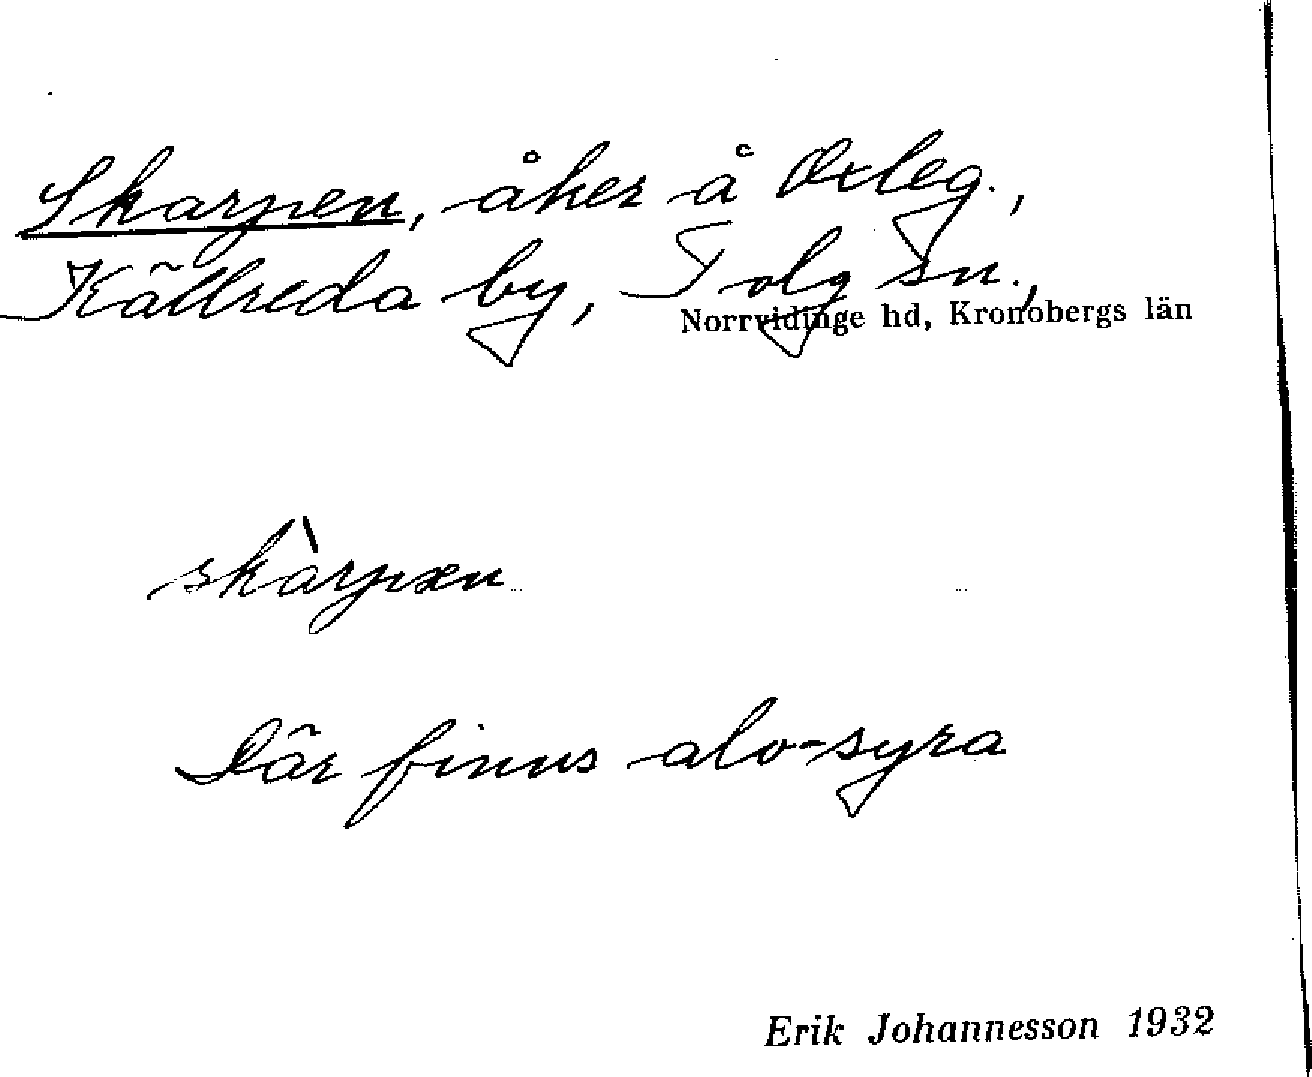 Skarpen, åker å Öxleg.,
Källreda by, Tolg sn.,
Norrvidinge hd, Kronobergs län
skàrpæn
Där finns alv-syra
Erik Johannesson 1932